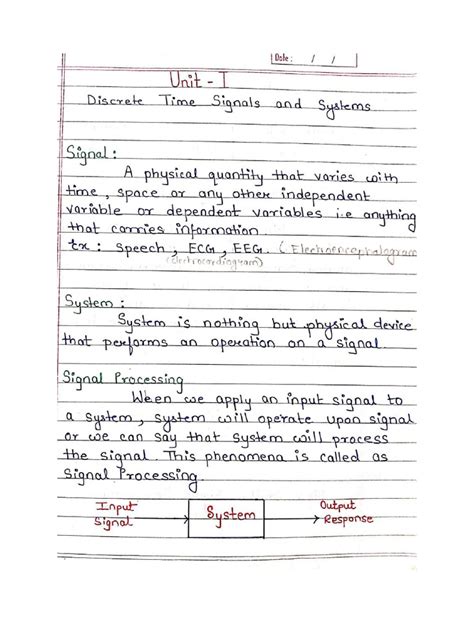 Date : / /
Unit - I
Discrete Time Signals and Systems
Signal :
A physical quantity that varies with
time , space or any other independent
variable or dependent variables i.e anything
that carries information.
Ex : Speech , ECG , EEG. ( Electroencephalogram
(Electrocardiogram)
System :
System is nothing but physical device
that performs an operation on a signal.
Signal Processing
Ween we apply an input signal to
a system, system will operate upon signal
or we can say that system will process
the signal. This phenomena is called as
Signal Processing.
Input Signal
System
Output Response